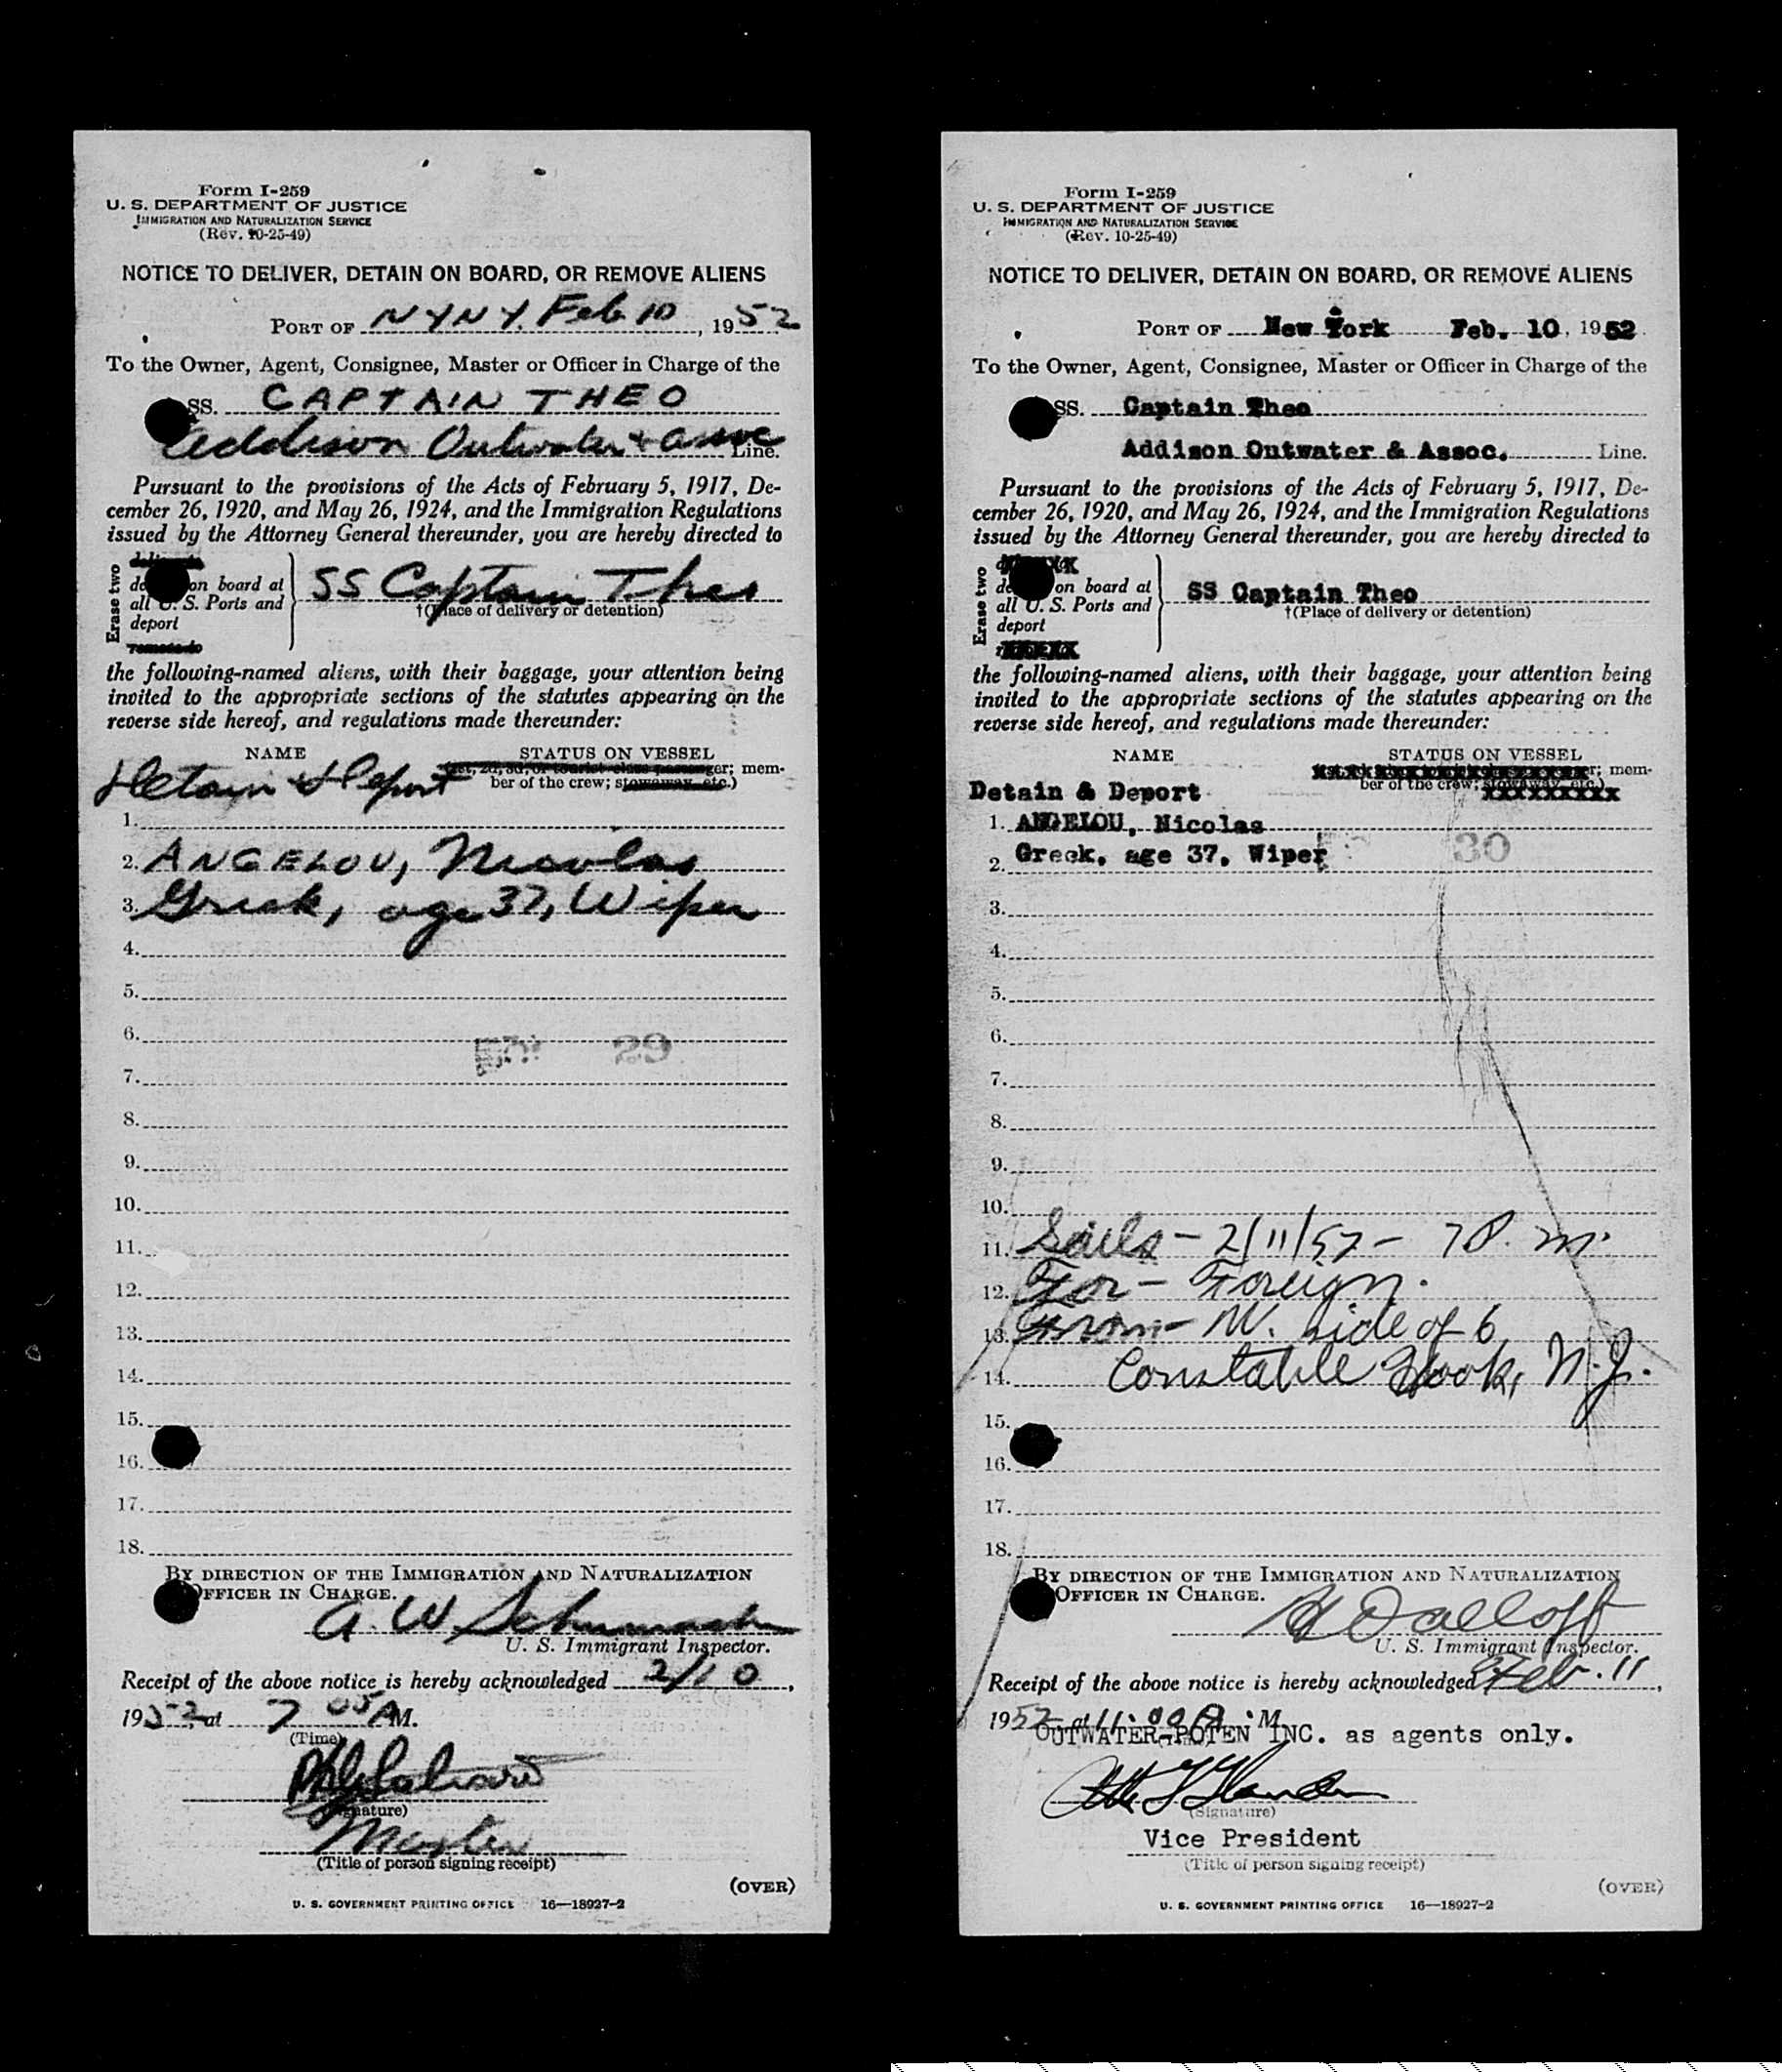 Form I-259
U. S. DEPARTMENT OF JUSTICE
IMMIGRATION AND NATURALIZATION SERVICE
(Rev. 10-25-49)
NOTICE TO DELIVER, DETAIN ON BOARD, OR REMOVE ALIENS
PORT OF NYNY. Feb 10, 1952
To the Owner, Agent, Consignee, Master or Officer in Charge of the
SS. CAPTAIN THEO
Addison Outwater & Assoc Line.
Pursuant to the provisions of the Acts of February 5, 1917, De-
cember 26, 1920, and May 26, 1924, and the Immigration Regulations
issued by the Attorney General thereunder, you are hereby directed to
Erase two
on board at
all U. S. Ports and
deport
SS Captain Theo
†(Place of delivery or detention)
the following-named aliens, with their baggage, your attention being
invited to the appropriate sections of the statutes appearing on the
reverse side hereof, and regulations made thereunder:
NAME STATUS ON VESSEL
Detain & Deport (1st, 2d, 3d, or tourist class passenger; mem-
ber of the crew; stowaway, etc.)
1.
2. ANGELOU, Nicolas
3. Greek, age 37, Wiper
4.
5.
6.
29
7.
8.
9.
10.
11.
12.
13.
14.
15.
16.
17.
18.
BY DIRECTION OF THE IMMIGRATION AND NATURALIZATION
OFFICER IN CHARGE.
A. W.
U. S. Immigrant Inspector.
Receipt of the above notice is hereby acknowledged 2/10,
1952, at 7 05 AM.
(Time)
(Signature)
Master
(Title of person signing receipt)
(OVER)
U. S. GOVERNMENT PRINTING OFFICE 16—18927-2
Form I-259
U. S. DEPARTMENT OF JUSTICE
IMMIGRATION AND NATURALIZATION SERVICE
(Rev. 10-25-49)
NOTICE TO DELIVER, DETAIN ON BOARD, OR REMOVE ALIENS
PORT OF New York Feb. 10, 1952.
To the Owner, Agent, Consignee, Master or Officer in Charge of the
SS. Captain Theo
Addison Outwater & Assoc. Line.
Pursuant to the provisions of the Acts of February 5, 1917, De-
cember 26, 1920, and May 26, 1924, and the Immigration Regulations
issued by the Attorney General thereunder, you are hereby directed to
Erase two
on board at
all U. S. Ports and
deport
SS Captain Theo
†(Place of delivery or detention)
the following-named aliens, with their baggage, your attention being
invited to the appropriate sections of the statutes appearing on the
reverse side hereof, and regulations made thereunder:
NAME STATUS ON VESSEL
mem-
Detain & Deport ber of the crew;
1. ANGELOU, Nicolas
2. Greek, age 37, Wiper 30
3.
4.
5.
6.
7.
8.
9.
10.
11. Sails - 2/11/52 - 7 P. m.
12. For - Foreign.
13. From - W. side of 6
14. Constable Hook, N.J.
15.
16.
17.
18.
BY DIRECTION OF THE IMMIGRATION AND NATURALIZATION
OFFICER IN CHARGE.
U. S. Immigrant Inspector.
Receipt of the above notice is hereby acknowledged Feb. 11,
1952 at 11:00 A.M.
OUTWATER-POTEN INC. as agents only.
(Signature)
Vice President
(Title of person signing receipt)
(OVER)
U. S. GOVERNMENT PRINTING OFFICE 16—18927-2